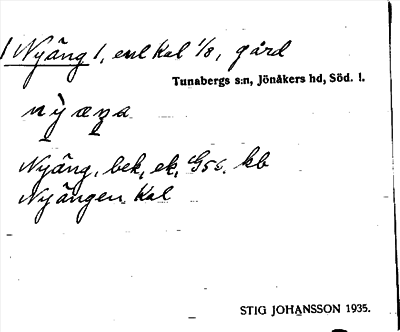 / Nyäng /, enl Kal 1/8, gård
Tunabergs s:n, Jönåkers hd, Söd. l.
Nyäng, bek, ek, G55. kb
Nyängen Kal
STIG JOHANSSON 1935.